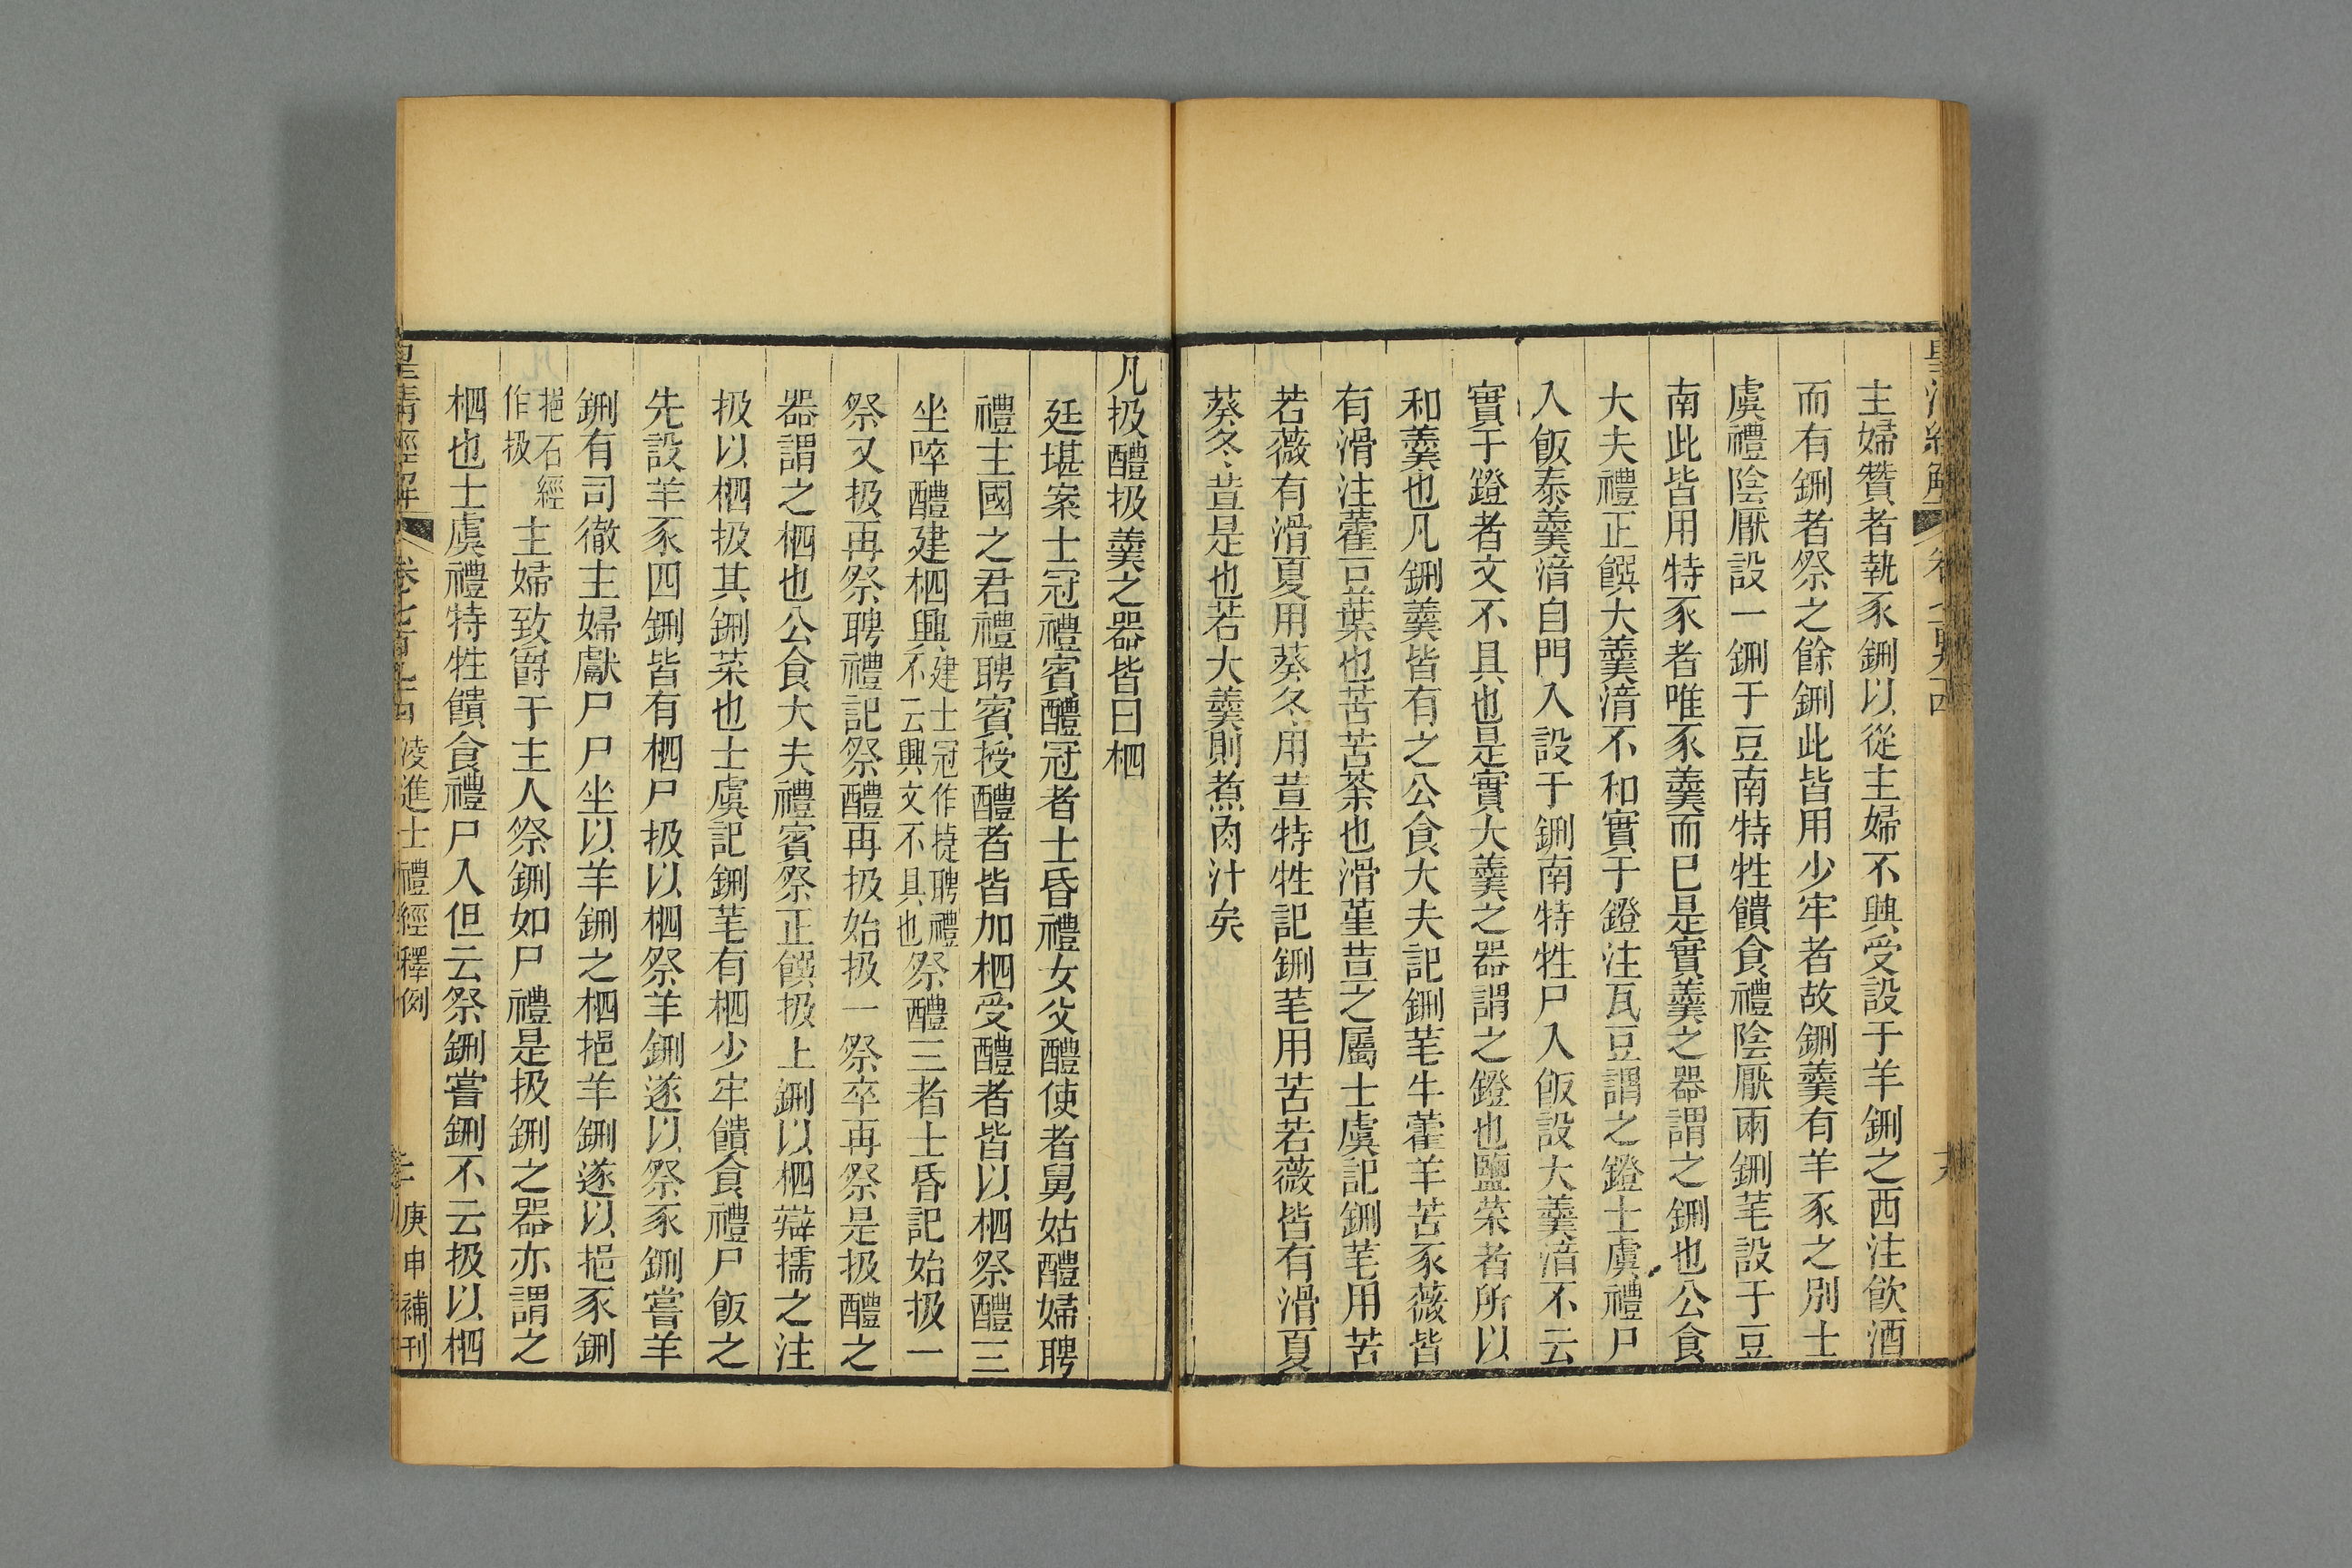 主婦贊者執豕鉶以從主婦不興受設于羊鉶之西注飲酒
而有鉶者祭之餘鉶此皆用少牢者故鉶羹有羊豕之別士
虞禮陰厭設一鉶于豆南特牲饋食禮陰厭兩鉶芼設于豆
南此皆用特豕者唯豕羹而已是實羹之器謂之鉶也公食
大夫禮正饌大羹湆不和實于鐙注瓦豆謂之鐙士虞禮尸
入飯泰羹湆自門入設于鉶南特牲尸入飯設大羹湆不云
實于鐙者文不具也是實大羹之器謂之鐙也鹽菜者所以
和羹也凡鉶羹皆有之公食大夫記鉶芼牛藿羊苦豕薇皆
有滑注藿豆葉也苦苦荼也滑堇荁之屬士虞記鉶芼用苦
若薇有滑夏用葵冬用荁特牲記鉶芼用苦若薇皆有滑夏
葵冬荁是也若大羹則煮肉汁矣
凡扱醴扱羹之器皆曰柶
廷堪案士冠禮賓醴冠者士昏禮女父醴使者舅姑醴婦聘
禮主國之君禮聘賓授醴者皆加柶受醴者皆以柶祭醴三
坐啐醴建柶興建士冠作捷聘禮不云興文不具也祭醴三者士昏記始扱一
祭又扱再祭聘禮記祭醴再扱始扱一祭卒再祭是扱醴之
器謂之柶也公食大夫禮賓祭正饌扱上鉶以柶辯擩之注
扱以柶扱其鉶菜也士虞記鉶芼有柶少牢饋食禮尸飯之
先設羊豕四鉶皆有柶尸扱以柶祭羊鉶遂以祭豕鉶嘗羊
鉶有司徹主婦獻尸尸坐以羊鉶之柶挹羊鉶遂以挹豕鉶
挹石經作扱主婦致爵于主人祭鉶如尸禮是扱鉶之器亦謂之
柶也士虞禮特牲饋食禮尸入但云祭鉶嘗鉶不云扱以柶
皇清經解 卷七百八十四 淩進士禮經釋例 庚申補刊